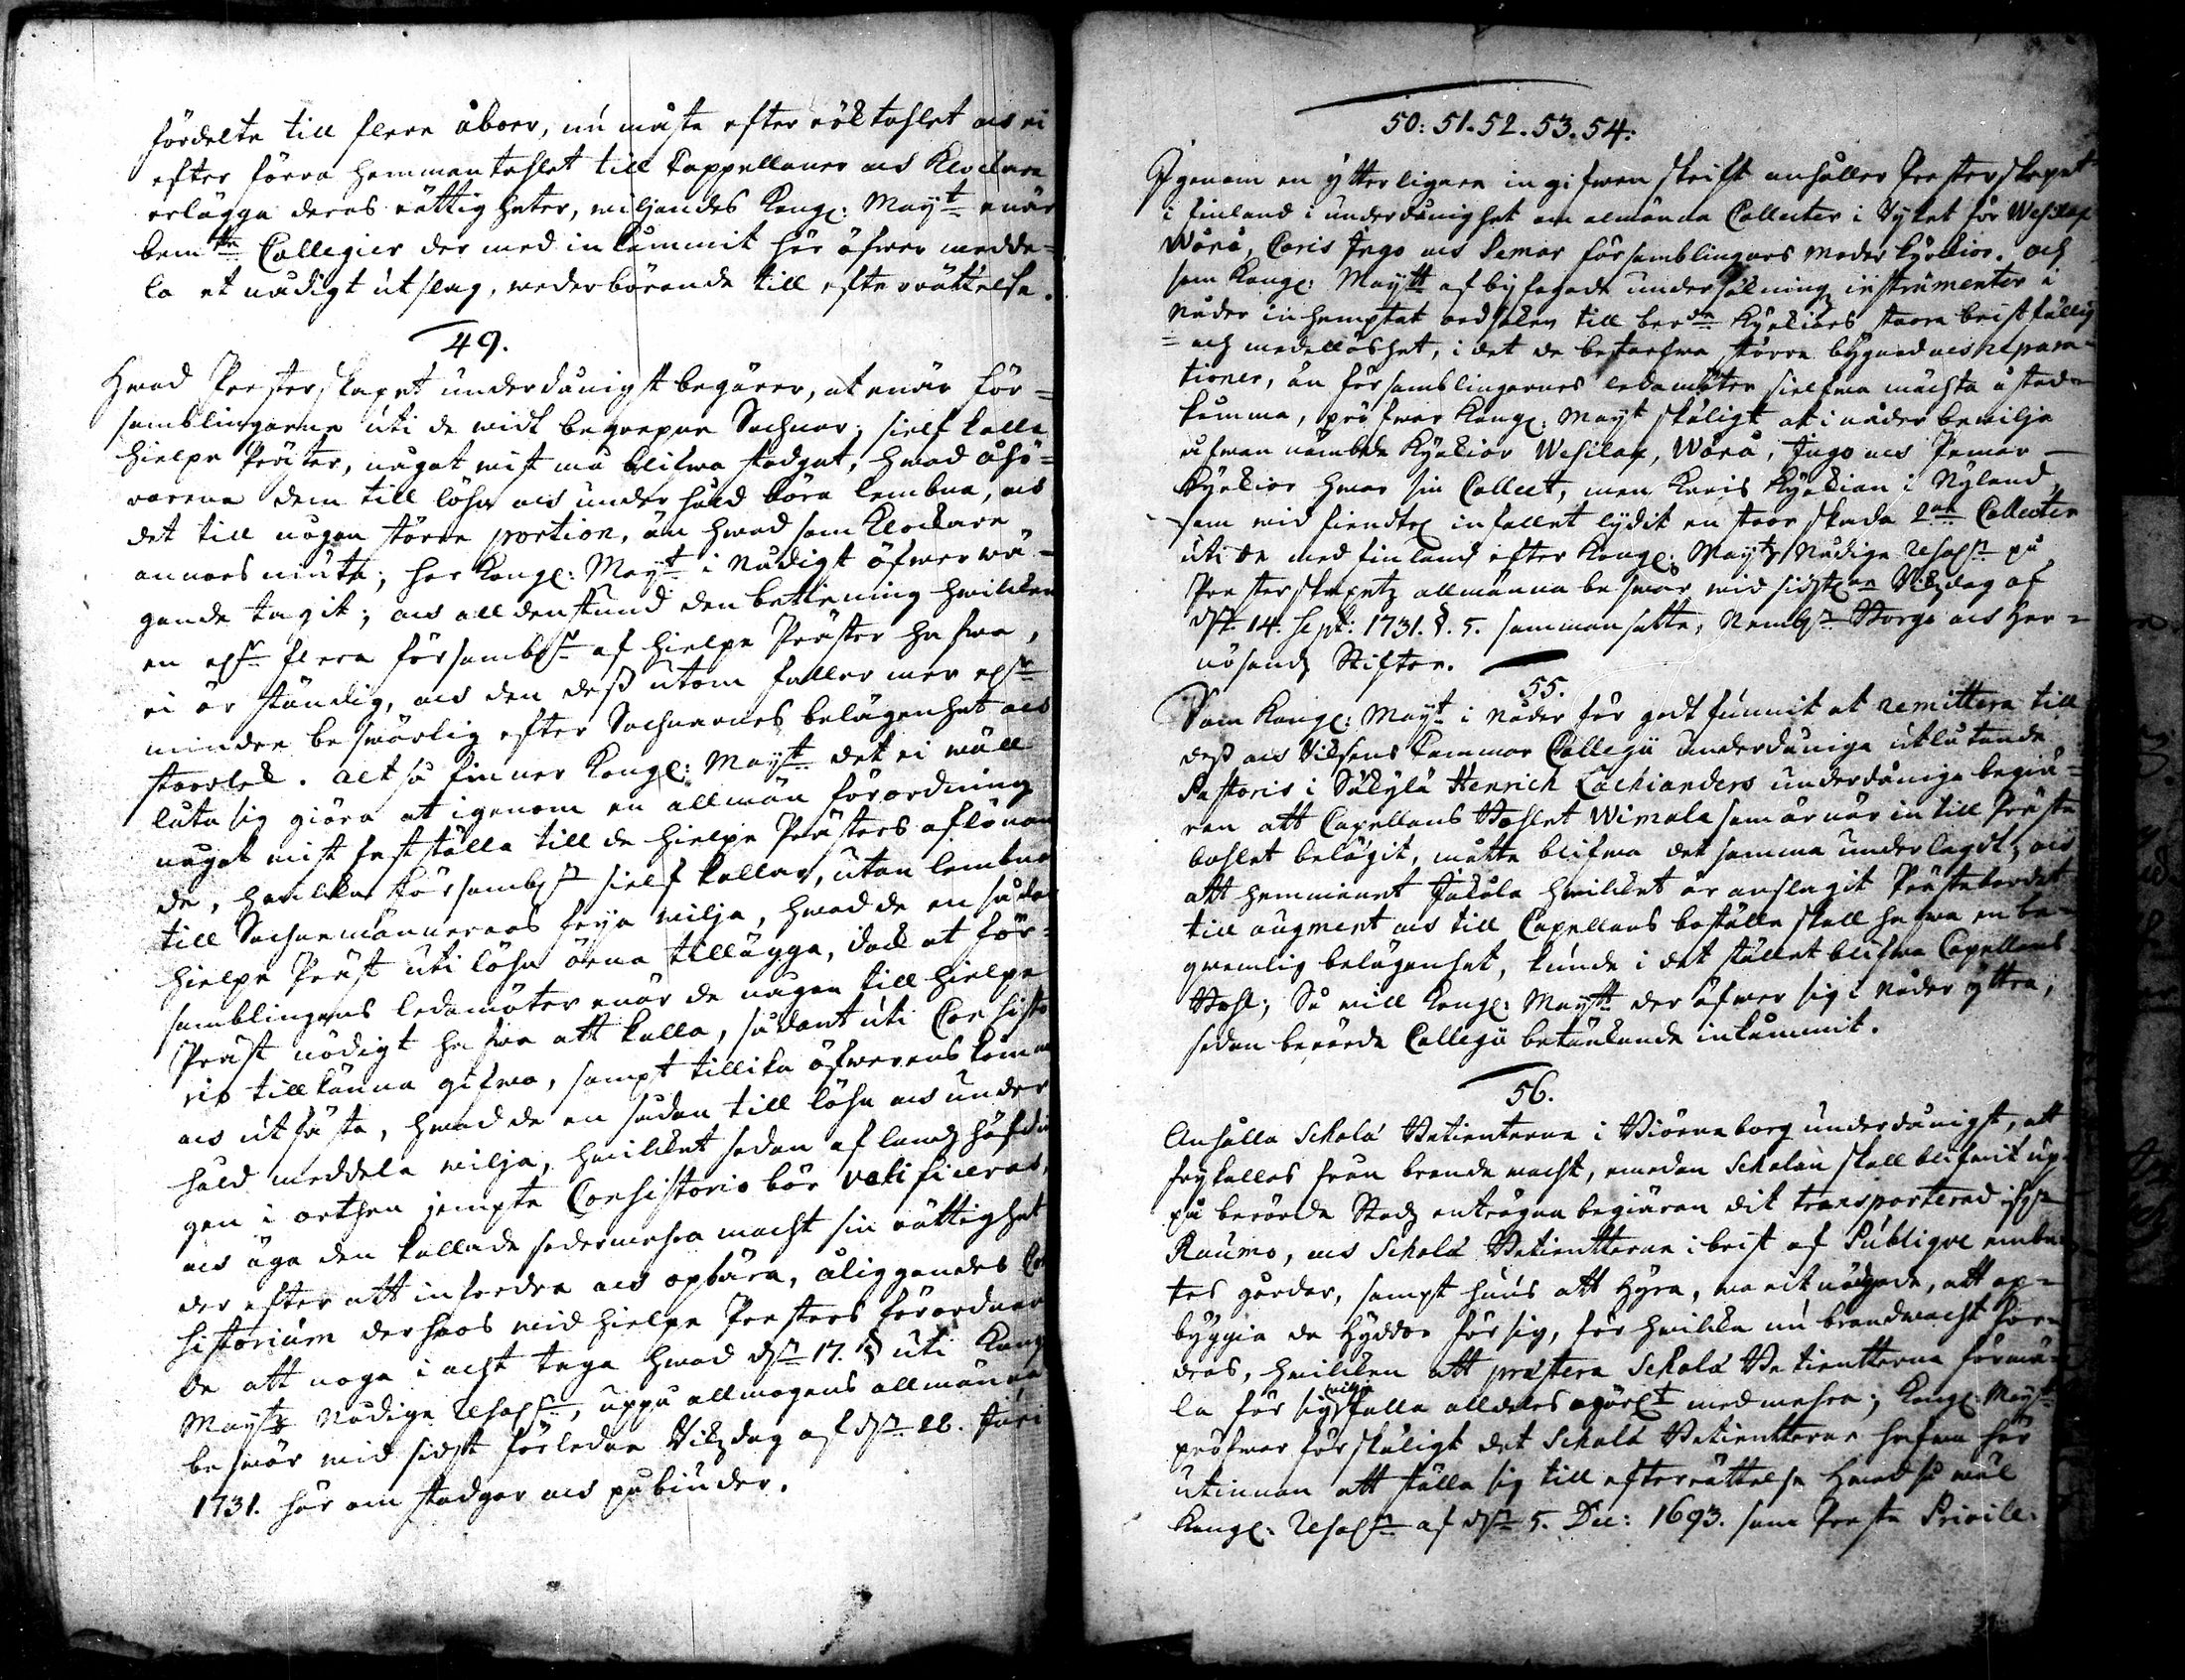 fördelte till flere åboer, nu måste efter röktahlet och ei
efter förra hemmantahlet till Cappellaner och Klockare
erlägga deras rättigheter, wiljandes Kongl: Mayt enär
bemte Collegier der med inkummit här öfwer medde-
la et nådigt utslag, wederbörande till efterrättelse.
49.
Hwad Presterskapet underdånigst begärer, at enär för-
samblingarne uti de widt begrepne Sochnar, sielf kalla
hielpe Präster, något wist må blifwa stadgat, hwad åhö-
rarena dem till löhn och underhåld böra lembna, och
det till någon större portion, än hwad som Klockare
annars niuta; har Kongl: Mayt i Nådigt öfwerwä-
gande tagit; och alldenstund den betiening hwilken
en eller flere församblingar af hielpe Präster hafwa,
ei är ständig, och den dess utom faller mer eller
mindre beswärlig efter Sochnarnes belägenhet och
storlek. Altså finner Kongl: Maytt det ei wäll
låta sig giöra at igenom en allmän förordning
något wist fastställa till de hielpe Prästers aflönan-
de, hwilka församblingar sielf kallar, utan lembnas
till Sochnemännernas frija wilja, hwad de en sådan
hielpe Präst uti löhn ärna tillägga, dock at för-
samblingens ledamöter enär de någon till hielpe
Präst nödigt hafwa att kalla, sådant uti Consisto
rio tillkänna gifwa, sampt tillika öfwerenskomma
och utfästa, hwad de en sådan till löhn och under
håld meddela wilja, hwilket sedan af landzhöfdin
gen i orthen jempte Consistorio bör ratificeras,
och äga den kallade sedermehra macht sin rättighet
der efter att infordra och opbära, åliggandes Con
sistorium derhoos wid hielpe Presters förordnan
de att noga i acht taga hwad den 17. § uti Kongl
Maytz Nådige Resolution, uppå allmogens allmänna
beswär wid sidst förledne Rikzdag af den 28. Juni
1731. här om stadgar och påbiuder.
50: 51. 52. 53. 54:
Igenom en ytterligare ingifwen skrift anhåller Presterskapet
i finland i underdånighet om almänna Collecter i Ryket för Wesilax
Wörå, Caris Ingo och Pemar församblingars moderkyrkior. Och
som Kongl: Maytt af bijfogade undersökning instrumenter i
Nåder inhemptat ordsaken till berde Kyrkiors stoora bristfällig
- och medellöshet, i det de bestorfwa större bygnad och repara-
tioner, än församblingarnes ledamöter sielfwe mächta åstad-
komma, pröfwar Kongl: Mayt skäligt at i nåder bewilja
ofwannämbde Kyrkior Wesilax, Wörå, Ingo och Pemar
Kyrkior hwar sin Collect, men Karis Kyrkian i Nyland,
som wid fiendtl infallet lydit en stoor skada 2ne Collecter
uti de med finland efter Kongl: Maytz Nådige Resol: på
Presterskapetz allmänna beswär wid sidstledne Rikzdag af
den 14. Sept: 1731. §. 5. sammansatte, Nembl. Borgo och Her-
nösandz Stifter.
55.
Som Kongl: Mayt i Nåder för godt funnit at remittera till
dess och Riksens Cammar Collegii underdåniga utlåtande
Pastoris i Säkylä Henrich Cachianders underdåniga begiä-
ran att Capellans Bohlet Wimala som är när in till Präste
bohlet belägit, måtte blifwa det samma underlagdt, och
att hemmanet Jakåla hwilket är anslagit Prästebordet
till augment och till Capellans boställe skall hafwa en be-
qwemlig belägenhet, kunde i det stället blifwa Capellans
Bohl; Så will Kongl: Maytt der öfwer sig i Nåder yttra,
sedan berörde Collegii betänkande inkummit.
56.
Anhålla Scholæ Betienterne i Biörneborg underdånigst, att
frykallas från brandwacht, emedan Scholan skall blifwit up-
på berörde Stadz enträgna begiäran dit transporterad ifrån
Raumo, och Scholæ Betienterne i brist af Publique embe-
tes gårdar, sampt huus att hyra, wordit nödgade, att op-
byggia de hyddor för sig, för hwilka nu brandwacht for-
dras, hwilken att præstera Scholæ Betienterne förmå-
la för sig wilja falla alldeles ogörl:t medmehra; Kongl: Maytt
pröfwar för skäligt det Scholæ Betienterne hafwa här
utinnan att ställa sig till efterrättelse hwad så wäl
Kongl: Resol: af den 5. Dec: 1693. som Preste Privile-